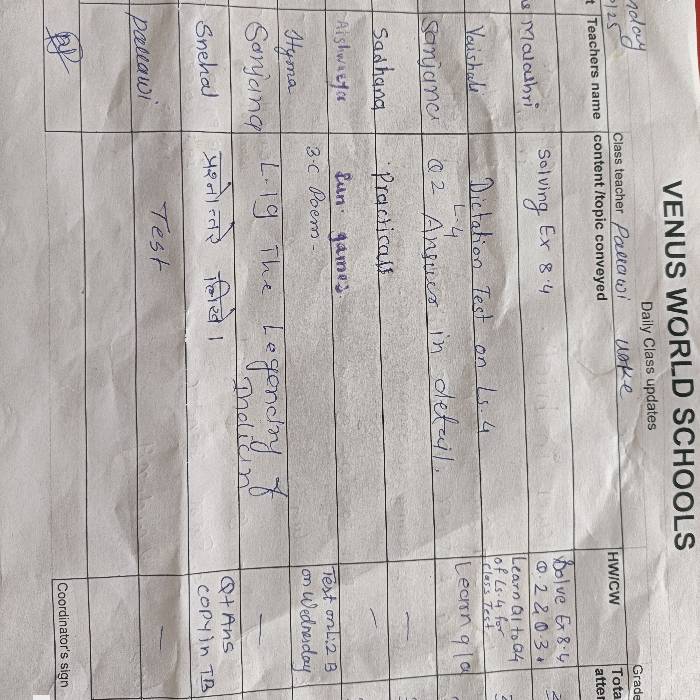 VENUS WORLD SCHOOLS
Daily Class updates
Grade
/25
Class teacher Pallawi
Teachers name
content /topic conveyed
HW/CW
Solving Ex 8.4
Solve Ex 8.4
Q. 2 & Q. 3
Vaishali
Dictation Test on Ls. 4
Learn Q1 to Q4
of Ls. 4 for
class Test
Sanjana
L.4
Q 2 Answer in detail.
Learn q/a
Sadhana
Practicals
—
Aishwarya
fun games
—
Hyma
3.C Poem -
Test on L.2 B
on Wednesday
Sanjana
L.19 The Legendry of
Indian
—
Snehal
Q + Ans
copy in TB
Pallawi
Test
—
Coordinator's sign